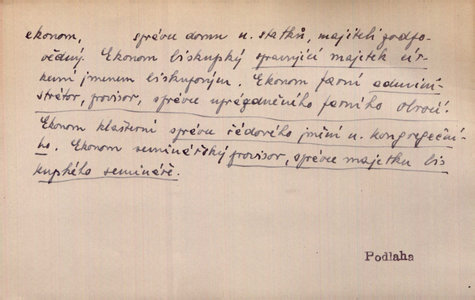 ekonom, správce domu n. statků, majiteli zodpo-
vědný. Ekonom biskupský spravující majetek cír-
kevní jmenem biskupovým. Ekonom farní admini-
strátor, provisor, správce uprázdněného farního obročí.
Ekonom klášterní správce řádového jmění n. kongregační-
ho. Ekonom seminářský provisor, správce majetku bis-
kupského semináře.
Podlaha